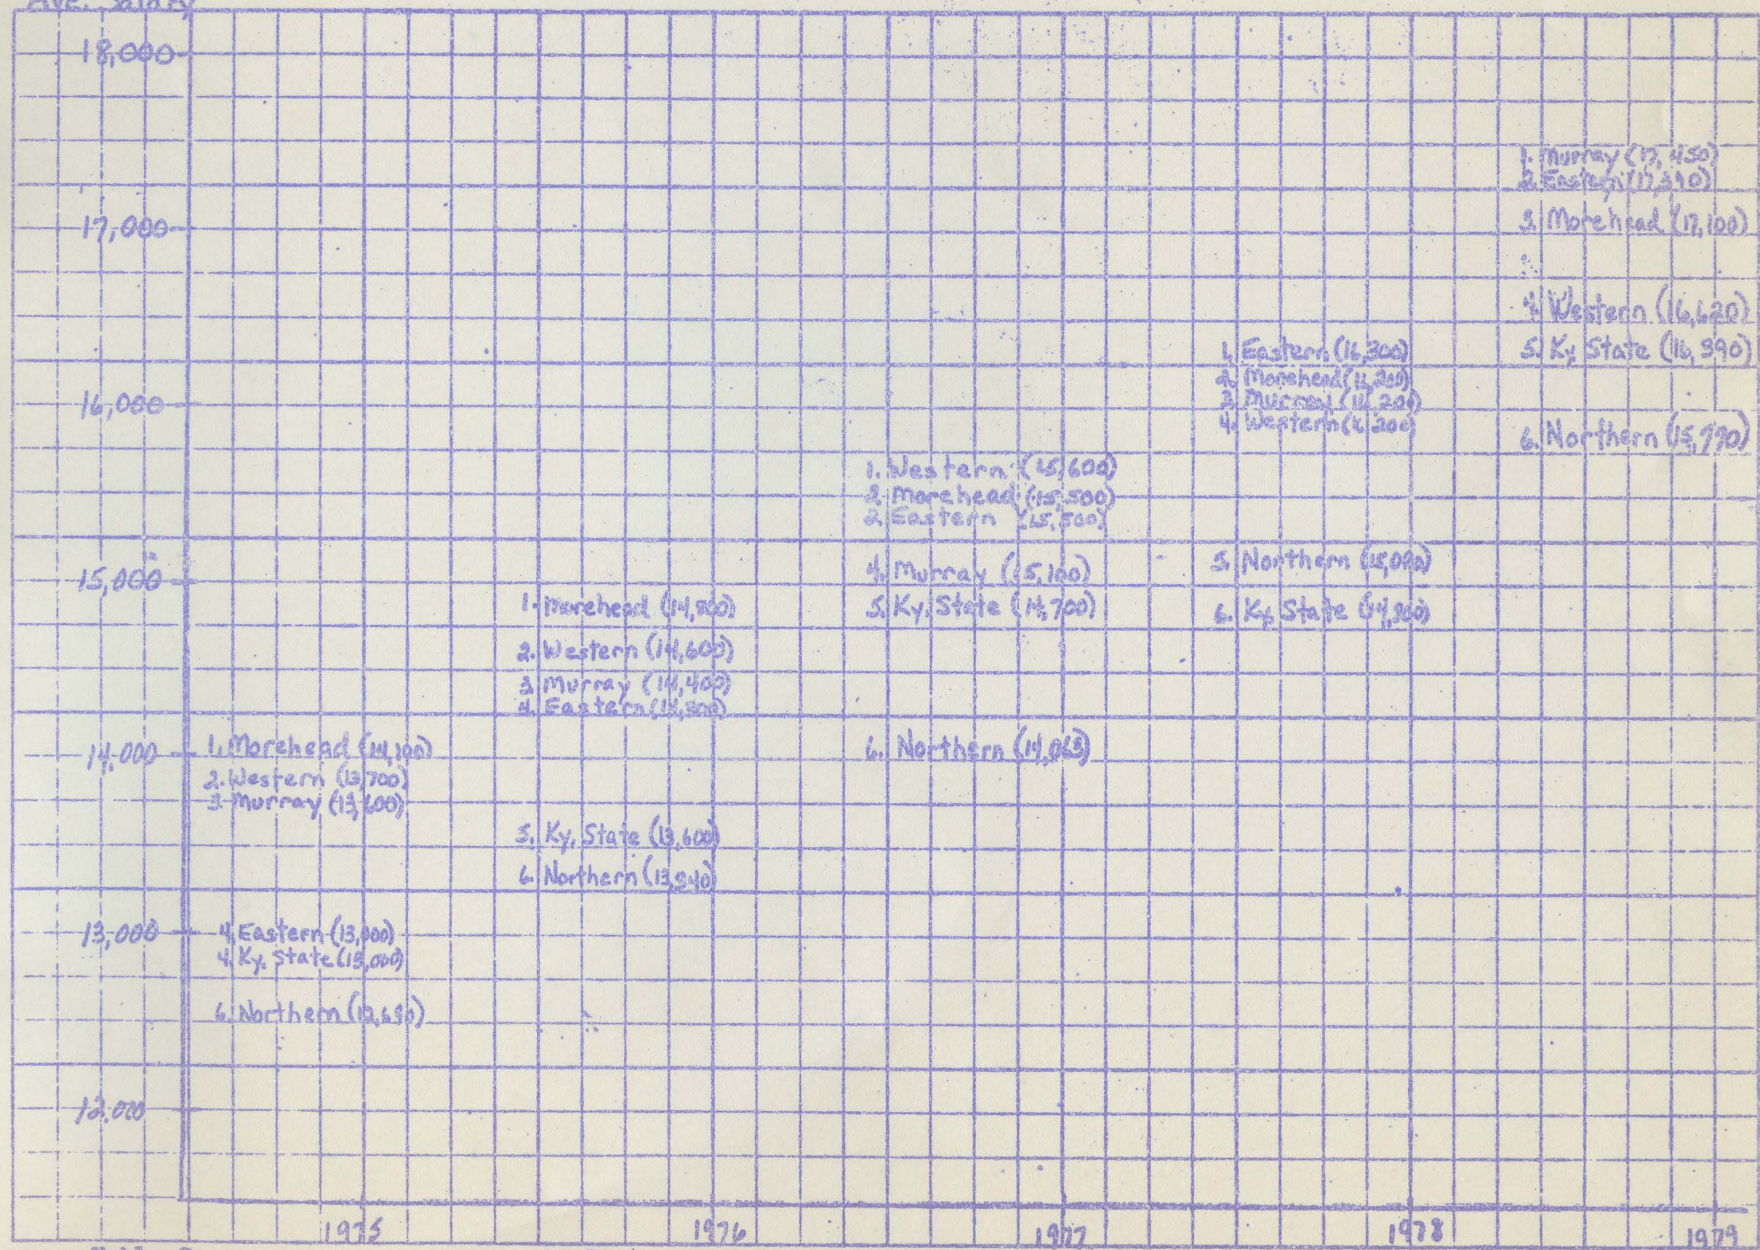 Ave. Salary
18,000
17,000
16,000
15,000
14,000
13,000
12,000
1. Morehead (14,100)
2. Western (13,700)
3. Murray (13,600)
4. Eastern (13,000)
4. Ky. State (13,000)
6. Northern (12,690)
1. Morehead (14,800)
2. Western (14,600)
3. Murray (14,400)
4. Eastern (14,300)
5. Ky. State (13,600)
6. Northern
1. Western (15,600)
2. Morehead (15,500)
2. Eastern (15,500)
4. Murray (15,100)
5. Ky. State (14,700)
6. Northern (14,063)
1. Eastern (16,300)
2. Morehead (16,200)
3. Murray (16,200)
4. Western (16,200)
5. Northern
6. Ky. State
1. Murray (17,450)
2. Eastern
3. Morehead (17,100)
4. Western (16,620)
5. Ky State (16,390)
6. Northern (15,770)
1975
1976
1977
1978
1979